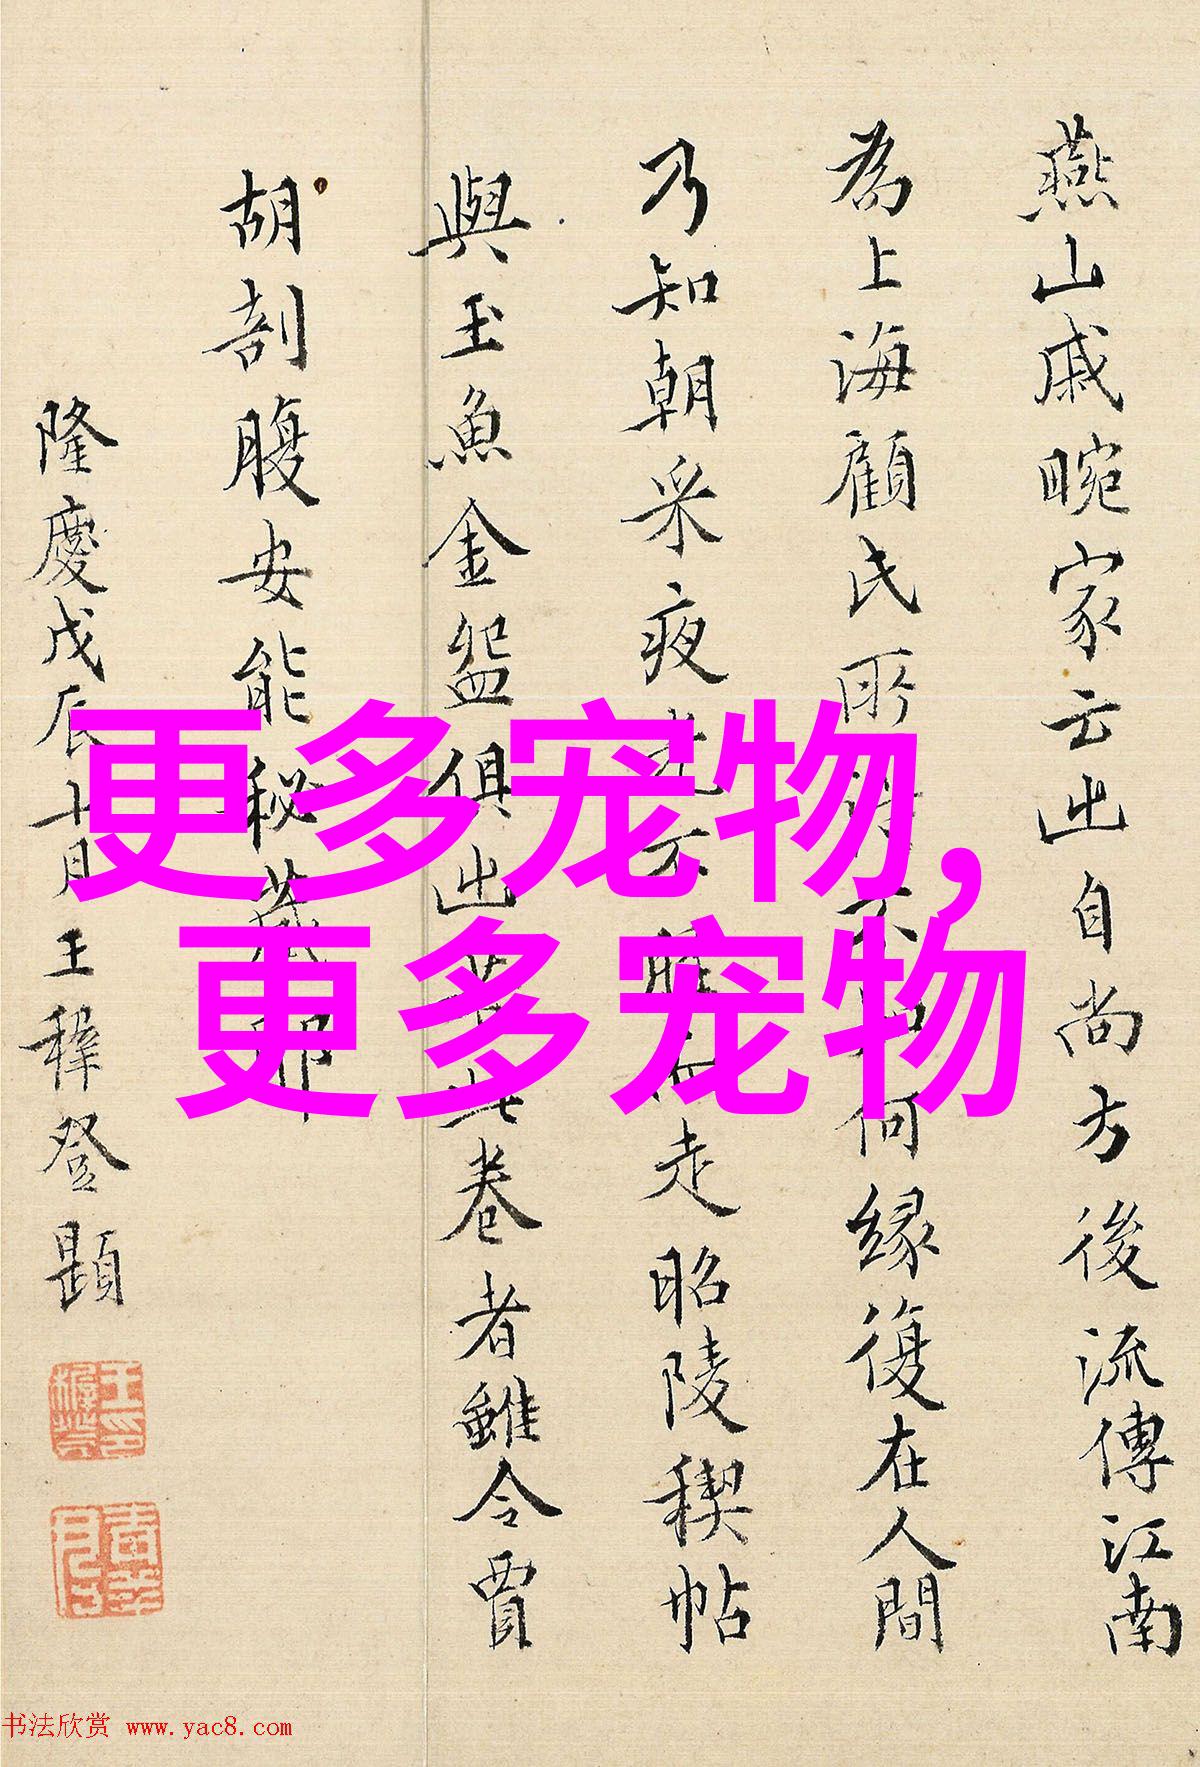 燕山戚畹家云出自尚方後流傳江南
為上海顧氏所不何縁復在人間
乃知朝采夜光不脛而走昭陵稧帖
與玉魚金盌俱出世此卷者雖令賈
胡剖腹安能秘藏耶
隆慶戊辰十月王穉登題
更多宠物,
更多宠物
书法欣赏 www.yac8.com